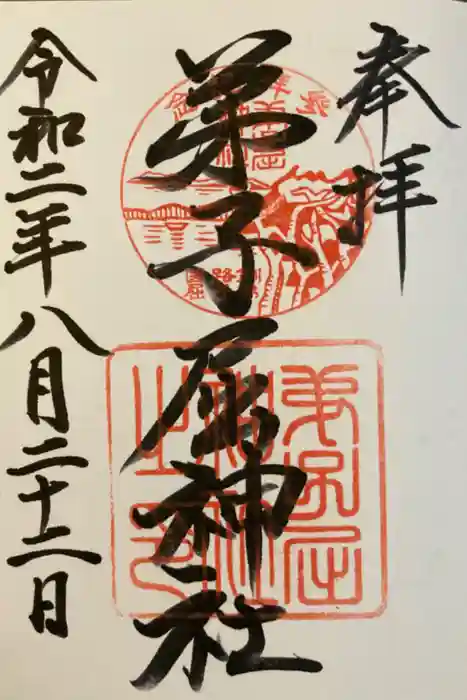 奉拝
弟子屈神社
令和二年八月二十二日